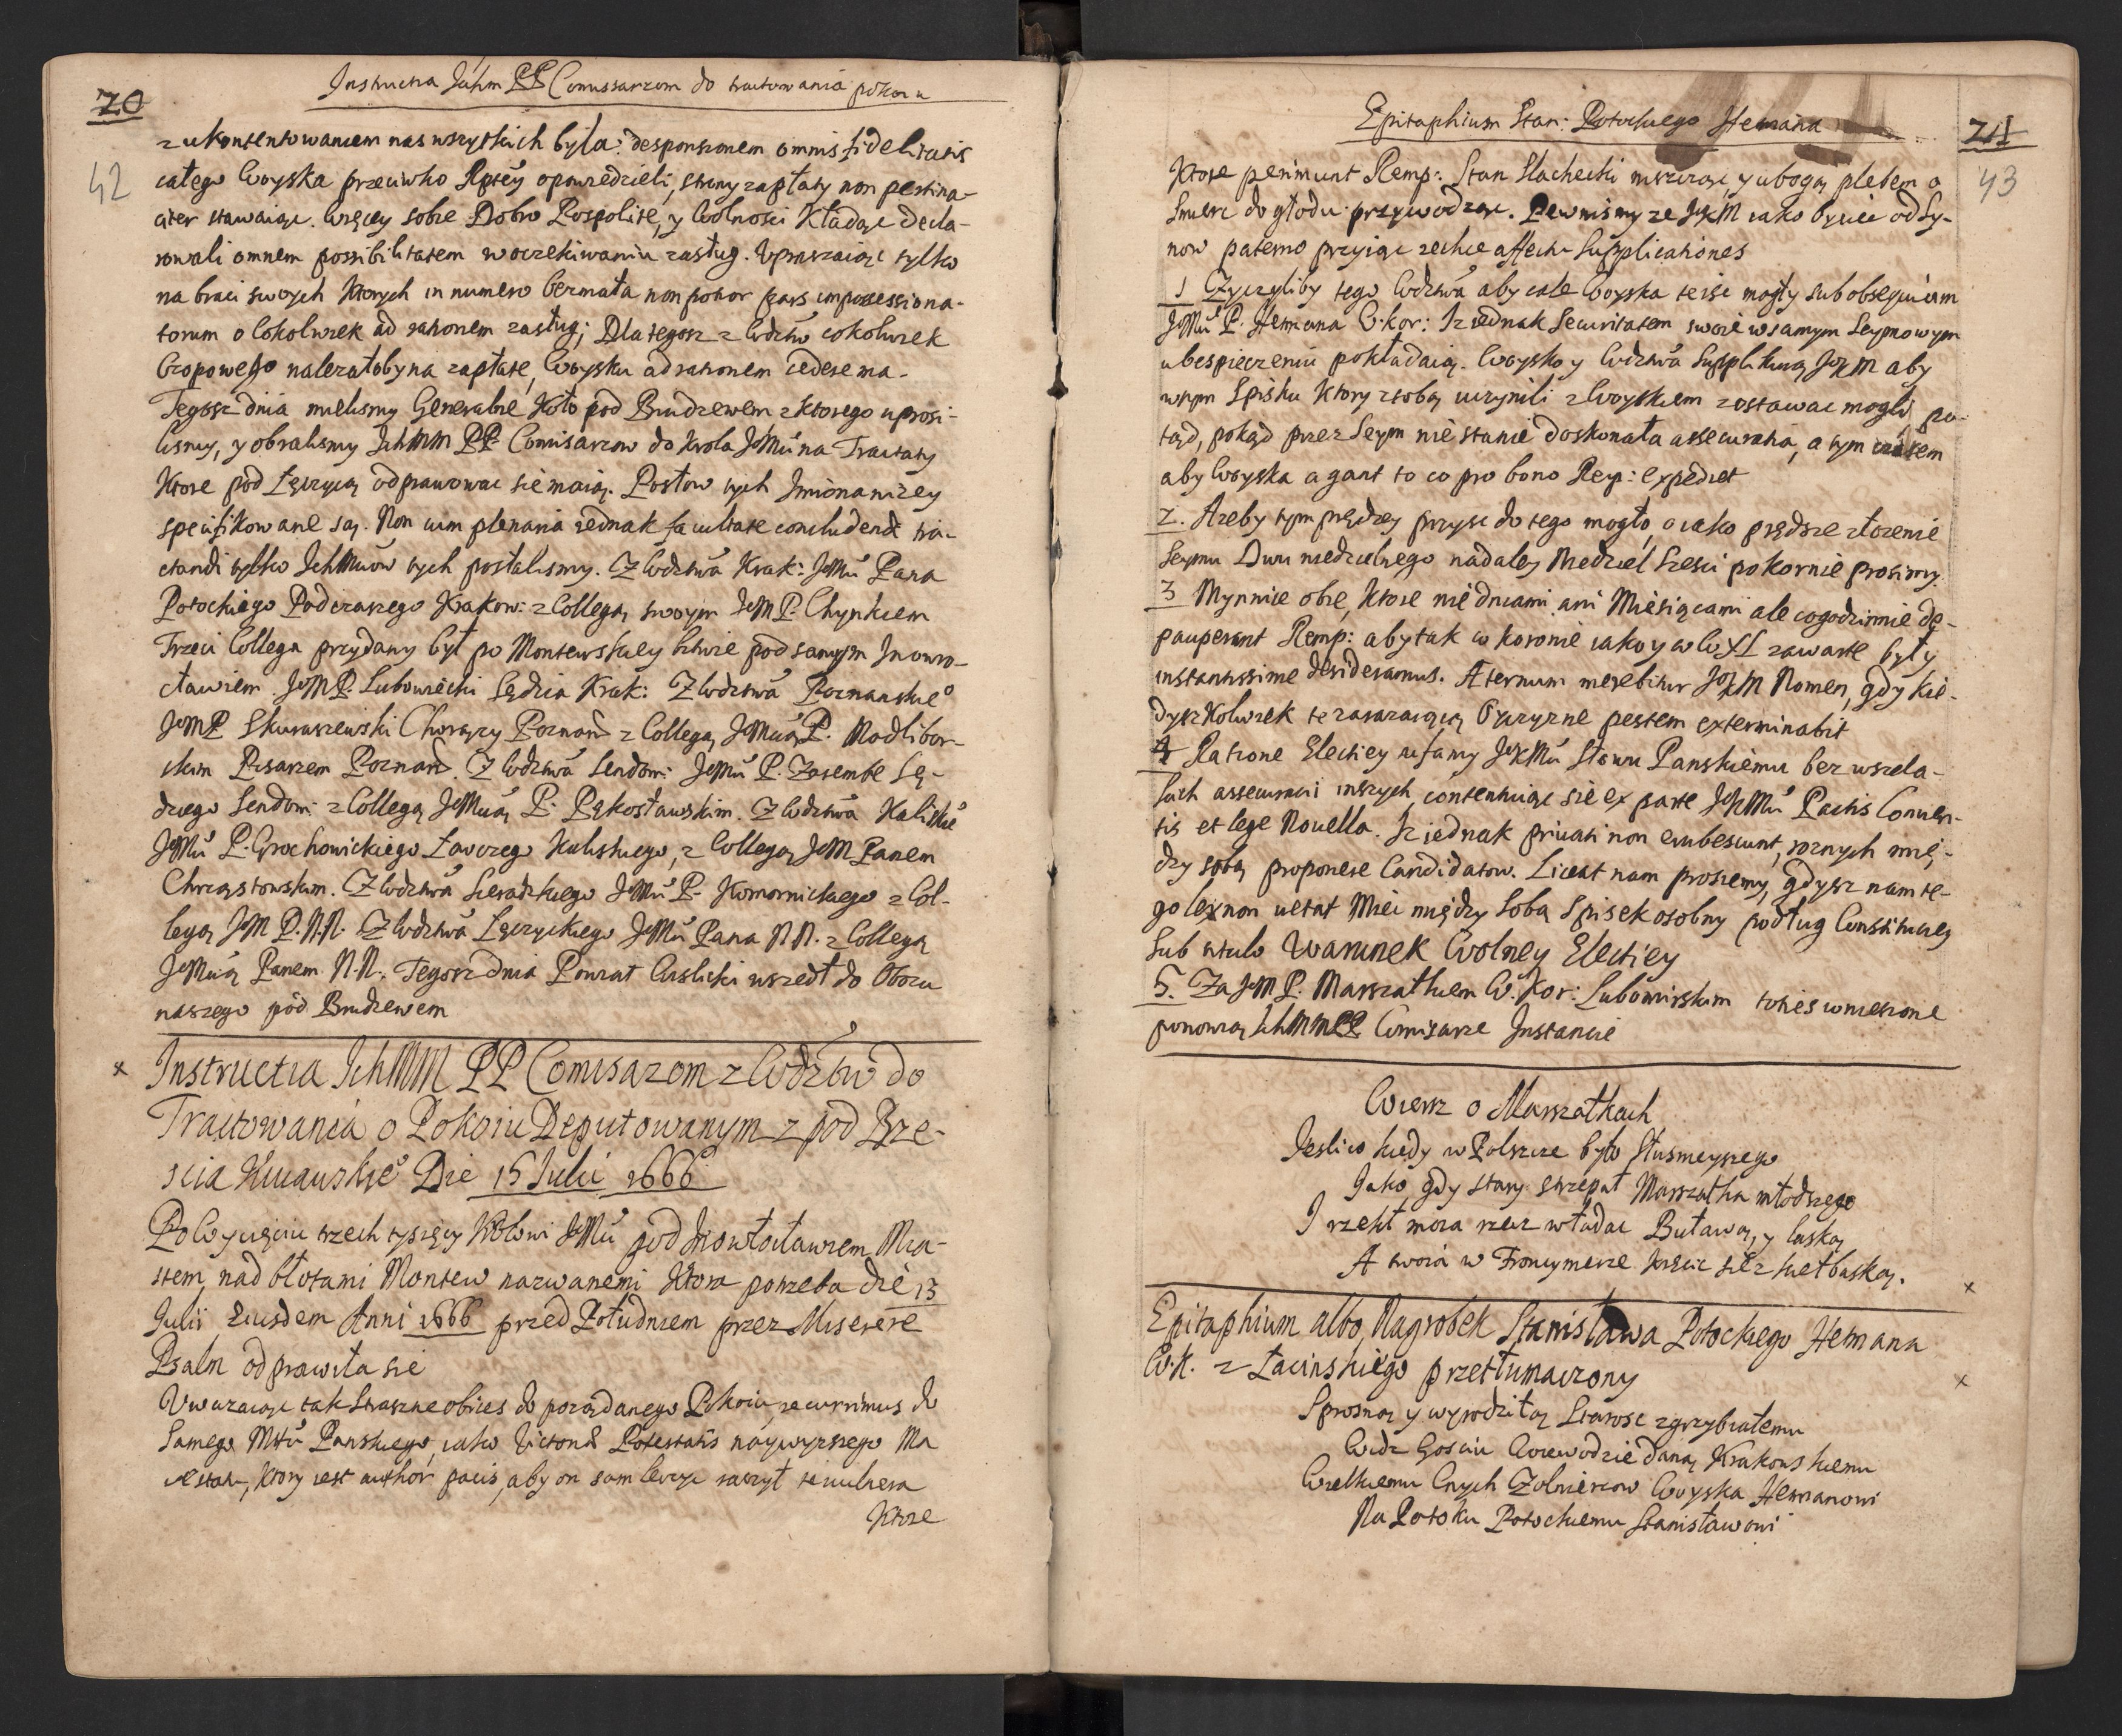 20
Instructia Ichm PP Comissarzom do tractowania pokoiu
42
z ukontentowaniem nas wszytkich była: desponsionem omnis fidelitatis
całego Woyska przeciwko Rptey opowiedzieli, strony zapłaty non pertina-
citer stawaiąc. Więcey sobie Dobro Pospolite, y Wolnosci kładąc decla-
rowali omnem possibilitatem w oczekiwaniu zasług. Upraszaiąc tylko
na braci swoych ktorych in numero bez mała non potior pars impossessiona-
torum o cokolwiek ad rationem zasług; Dla tegosz z Wdztw cokolwiek
Czopowego nalezałoby na zapłatę, Woysku ad rationem cedere ma.
Tegosz dnia mielismy Generalne Koło pod Brudzewem z ktorego uprosi-
lismy, y obralismy IchMM PP Comisarzow do Krola JeMći na Tractaty
Ktore pod Łęczycą odprawowac się maią. Posłow tych Imiona nizey
specifikowane są. Non cum plenaria iednak facultate concludendi tra-
ctandi tylko IchMćiow tych posłalismy. Z Wdztwa Krak: JeMći Pana
Potockiego Podczaszego Krakow: z Collegą swoym JeM P. Chynkiem
Trzeci Collega przydany był po Montewskiey bitwie pod samym Inowro-
cławiem JeMP. Lubowiecki Sędzia Krak: Z Wdztwa Poznanskie°
JeMP Skuraszewski Chorązy Poznań z Collegą JeMćią P. Modlibor-
skim Pisarzem Poznań. Z Wdztwa Sendom: JeMći P. Zarembe Sę-
dziego Sendom: z Collegą JeMćią P. Pękosławskim. Z Wdztwa Kaliskie°
JeMći P. Grochowickiego Łowczego Kaliskiego, z Collegą JeM Panem
Chrząstowskim. Z Wdztwa Sieradzkiego JeMći P. Komornickiego z Col-
legą JeM P. N.N. Z Wdztwa Łęczyckiego JeMći Pana N.N. z Collegą
JeMćią Panem N.N. Tegosz dnia Powiat Wislicki wszedł do Obozu
naszego pod Brudzewem
x Instructia IchMM PP Comisarzom z Wdztw do
Tractowania o Pokoiu Deputowanym z pod Brze-
scia Kuiawskie° Die 15 Iulii 1666
Po Wycięciu trzech tysięcy Krolowi JeMći pod Inowłocławiem Mia-
stem, nad błotami Montew nazwanemi Ktora potrzeba die 13
Iulii Eiusdem Anni 1666 przed Południem przez Miserere
Psalm odprawiła się
Uwazaiąc tak straszne obices do pożądanego Pokoiu, recurrimus do
Samego Mttu Panskiego, iako Victoris Potestatis naywyzszego Ma
iestatu, ktory iest author pacis, aby on sam leczyc raczył te vulnera
Ktore
Epitaphium Stan: Potockiego Hetmana
21
43
Ktore perimunt Remp: Stan Slachecki niszcząc y ubogą plebem o
Smierc do głodu przywodząc. Pewnismy ze JKM iako Oyciec od Sy-
now paterno przyiąc zechce affectu Supplicationes
1 Zyczyliby tego Wdztwa aby całe Woyska teisc mogły sub obsequium
JeMći P. Hetmana W. kor: Iz iednak Securitatem swoie w samym Seymowym
ubespieczeniu pokładaią. Woysko y Wdztwa Supplikuią JKM aby
w tym Spisku Ktory z sobą uczynili z Woyskiem zostawac mogli, po-
tąd, pokąd przez Seym nie stanie doskonała assecuratia, a tym czasem
aby Woyska agant to co pro bono Reip: expediet
2. Azeby tym prędzey przysc do tego mogło, o iako prędsze złozenie
Seymu Dwu niedzielnego nadaley Niedziel Szesci pokornie prosimy
3 Mynnice obie, Ktore nie dniami ani Miesiącami ale cogodzinnie de-
pauperant Remp: aby tak w koronie iako y w WXL zawarte były
instantissime desideramus. Aeternum merebitur JKM Nomen, gdy kie-
dysz kolwiek te zarazaiącą Oyczyzne pestem exterminabit
4 Ratione Electiey ufamy JKMći Słowu Panskiemu bez wszela-
kich assecuracii inszych, contentuiąc się ex parte JKMći Pactis Conven-
tis et lege Novella. Iz iednak privati non erubescunt, roznych mię-
dzy sobą proponere Candidatow. Liceat nam prosiemy, gdysz nam te-
go lex non vetat Miec między Sobą Spisek osobny podług Constituciey
Sub titulo Warunek Wolney Electiey
5. Za JeM P. Marszałkiem W. Kor: Lubomirskim toties wniesione
ponowią IchMMPP Comisarze Instancie
Wiersz o Marszałkach
Jesli co kiedy w Polszcze było słusnieyszego
Jako, gdy stary strzepał Marszałka młodszego
I rzekł moia rzecz władac Buławą, y laską
A twoia w Froncymerze kręcic się z kiełbaską. x
Epitaphium albo Nagrobek Stanisława Potockiego Hetmana
W.K. z Łacinskiego przetłumaczony x
Sprosną y wyrodziłą Starosc zgrzybiałemu
Widz Gosciu Woiewodzie daną Krakowskiemu
Wielkiemu Cnych Zołnierzow Woyska Hetmanowi
Na Potoku Potockiemu Stanisławowi